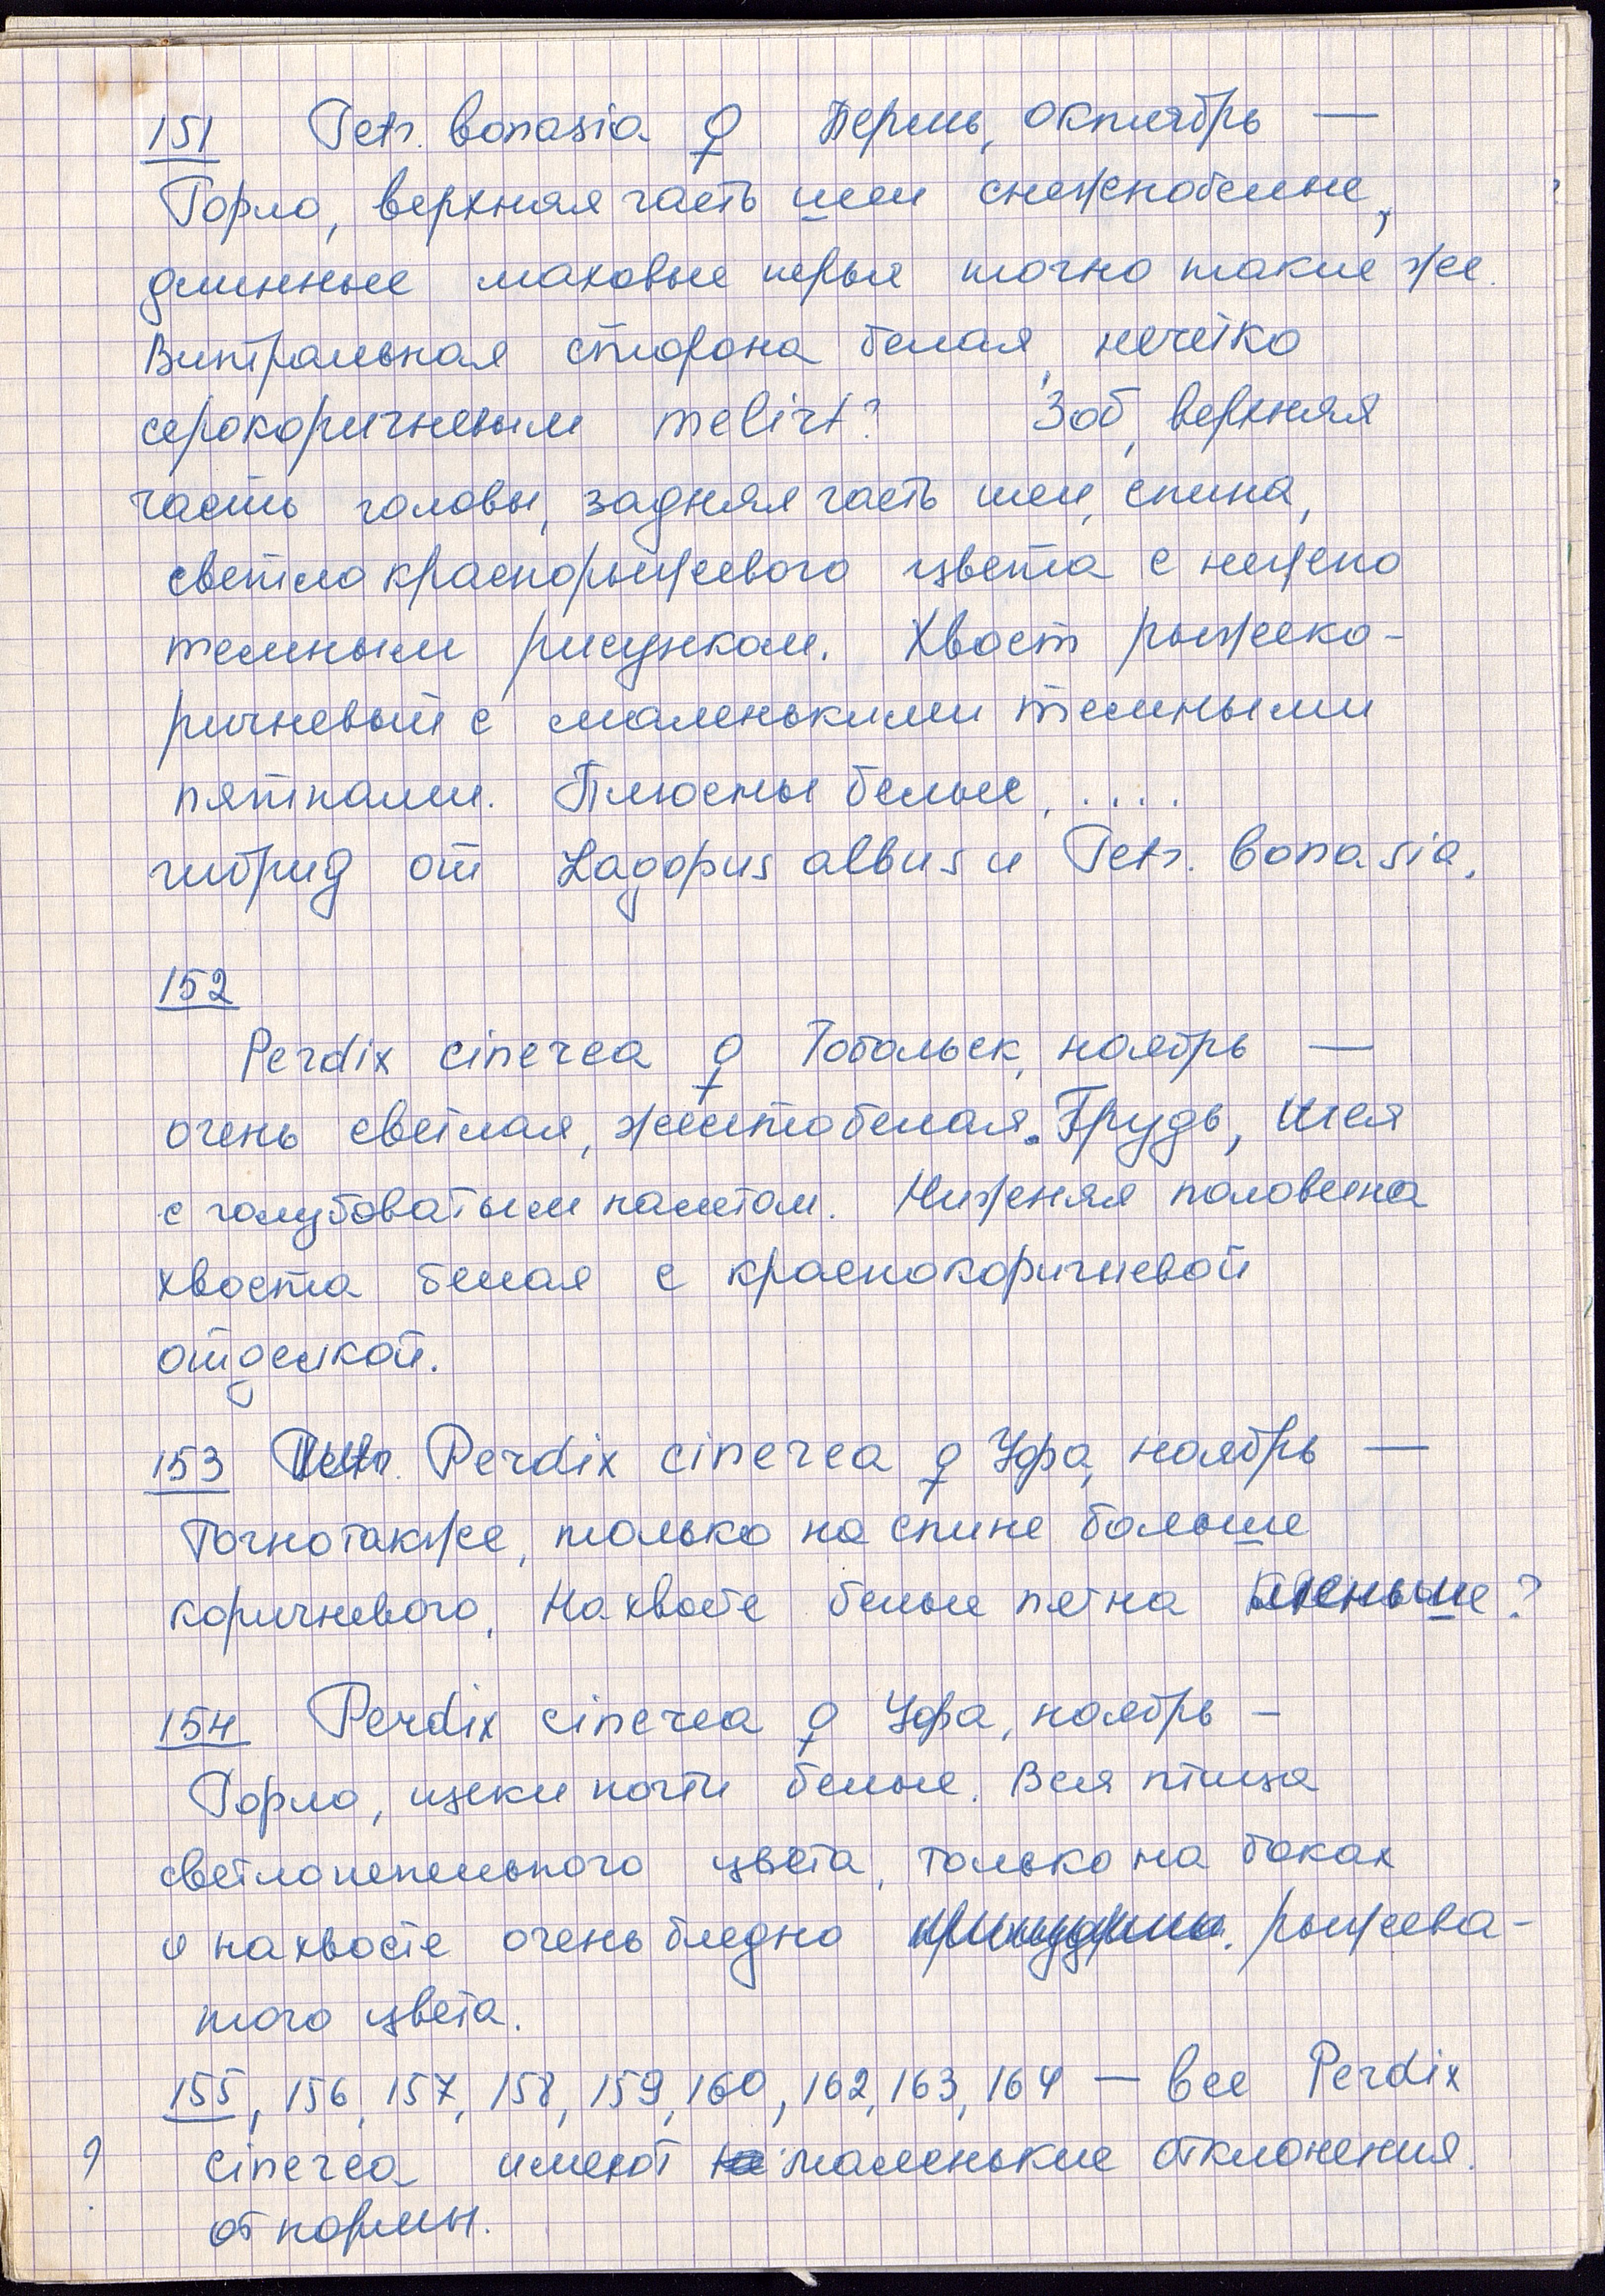 151 Tetr. bonasia ♀ Пермь, октябрь —
Горло, верхняя часть шеи снежнобелые,
длинные маховые перья точно такие же.
Винтральная сторона белая, нечётко
серокоричневым melirt? Зоб, верхняя
часть головы, задняя часть шеи, спина,
светлокраснорыжевого цвета с нежно
темным рисунком. Хвост рыжеко-
ричневый с маленькими темными
пятнами. Плюсны белые, ....
гибрид от Lagopus albus и Tetr. bonasia.
152
Perdix cinerea ♀ Тобольск, ноябрь —
очень светлая, желтобелая. Грудь, шея
с голубоватым налётом. Нижняя половина
хвоста белая с краснокоричневой
отделкой.
153 Perdix cinerea ♀ Уфа, ноябрь —
Точно также, только на спине больше
коричневого, На хвосте белые пятна меньше?
154 Perdix cinerea ♀ Уфа, ноябрь —
Горло, щеки почти белые. Вся птица
светлопепельного цвета, только на боках
и на хвосте очень бледно рыжева-
того цвета.
155, 156, 157, 158, 159, 160, 162, 163, 164 — все Perdix
? cinerea имеют маленькие отклонения.
от нормы.